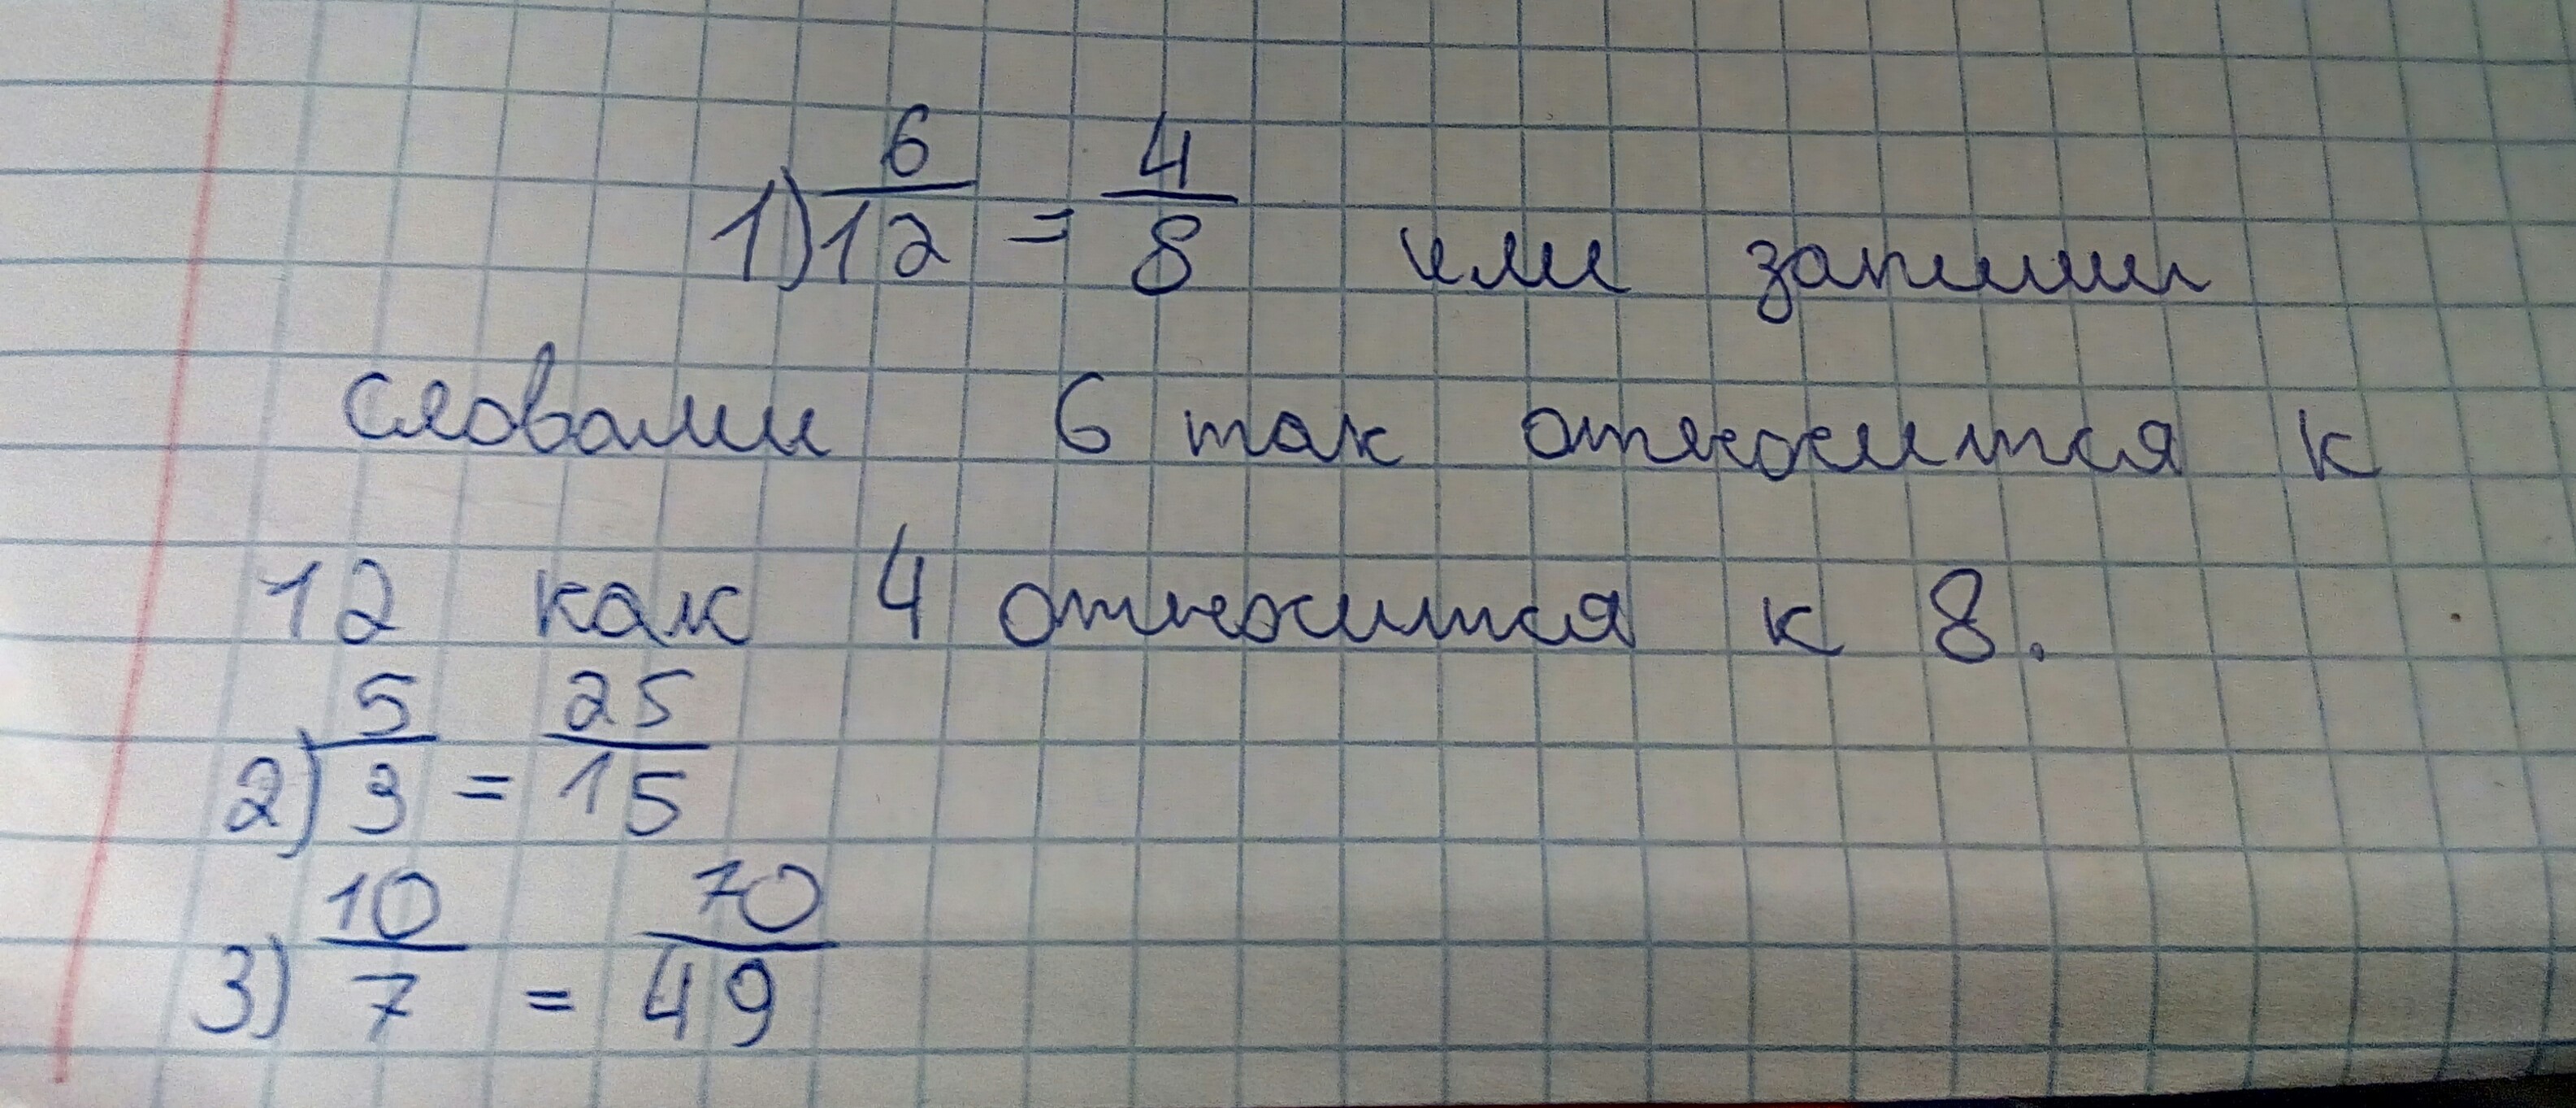 1) 6/12 = 4/8 или запиши
словами 6 так относится к
12 как 4 относится к 8.
2) 5/3 = 25/15
3) 10/7 = 70/49